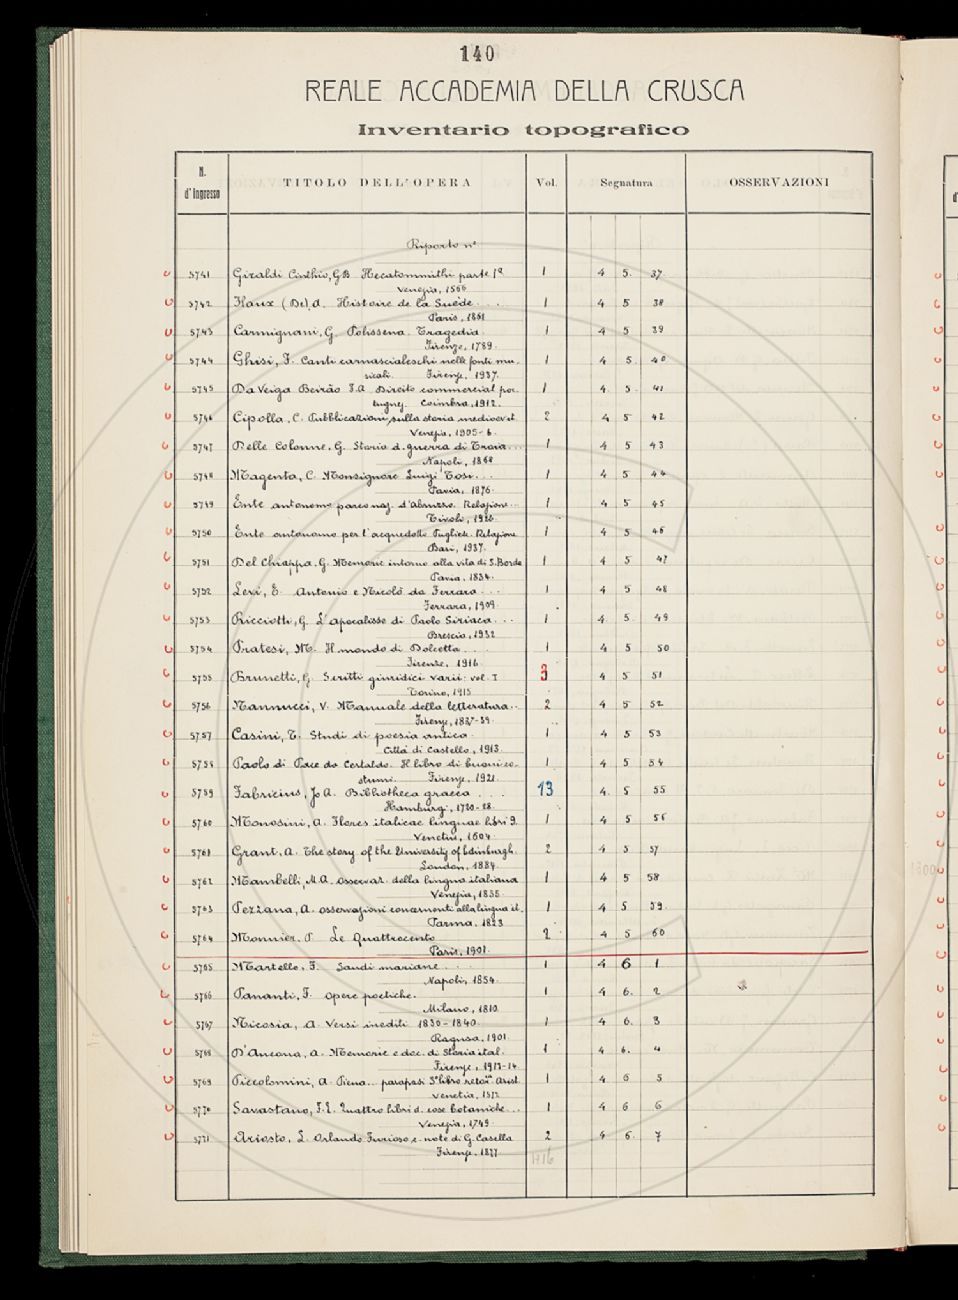 140
REALE ACCADEMIA DELLA CRUSCA
Inventario topografico
N. d'Ingresso TITOLO DELL'OPERA Vol. Segnatura OSSERVAZIONI
Riporto nº
5741 Giraldi Cinthio, G.B. Hecatommithi parte 1ª 1 4 5. 37
Venezia, 1566
5742 Flaux (De) d. Histoire de la Suède . . . 1 4 5 38
Paris, 1861
5743 Carmignani, G. Polissena. Tragedia. 1 4 5 39
Firenze, 1789.
5744 Ghisi, F. Canti carnascialeschi nelle fonti mu- 1 4 5. 40
sicali. Firenze, 1937.
5745 Da Veiga Beirão F.A. Direito commercial por- 1 4. 5. 41
tuguez. Coimbra, 1912.
5746 Cipolla, C. Pubblicazioni sulla storia medioevit. 2 4 5 42
Venezia, 1905-6.
5747 Delle Colonne, G. Storia d. guerra di Troia... 1 4 5 43
Napoli, 1868
5748 Magenta, C. Monsignore Luigi Tosi... 1 4 5 44
Pavia, 1876.
5749 Ente autonomo parco naz. d'Abruzzo. Relazione... 1 4 5 45
Tivoli, 1926.
5750 Ente autonomo per l'acquedotto Pugliese. Relazione 1 4 5 46
Bari, 1937.
5751 Del Chiappa, G. Memorie intorno alla vita di S. Borda 1 4 5 47
Pavia, 1834.
5752 Levi, E. Antonio e Nicolò da Ferrara . . . 1 4 5 48
Ferrara, 1909.
5753 Ricciotti, G. L'apocalisse di Paolo Siriaca... 1 4 5. 49
Brescia, 1932
5754 Pratesi, M. Il mondo di Dolcetta . . . 1 4 5 50
Firenze, 1916.
5755 Brunetti, G. Scritti giuridici varii: vol. I 3 4 5 51
Torino, 1915
5756 Nannucci, V. Manuale della letteratura.. 2 4 5 52
Firenze, 1837-39.
5757 Casini, T. Studi di poesia antica. 1 4 5 53
Città di Castello, 1913.
5758 Paolo di Pace da Certaldo. Il libro di buoni co- 1 4 5 54
stumi. Firenze, 1921.
5759 Fabricius, Jo A. Bibliotheca graeca . . . 13 4. 5 55
Hamburgi, 1720-28.
5760 Monosini, A. Flores italicae linguae libri 9. 1 4 5 56
Venetiis, 1604.
5761 Grant, A. The story of the University of Edinburgh. 2 4 5 57
London, 1884.
5762 Mambelli, M.A. Osservaz. della lingua italiana 1 4 5 58
Venezia, 1835.
5763 Pezzana, A. Osservazioni concernenti alla lingua it. 1 4 5 59.
Parma, 1823
5764 Monnier, P. Le Quattrocento 2 4 5 60
Paris, 1901.
5765 Martello, F. Laudi mariane . . . 1 4 6 1
Napoli, 1854.
5766 Pananti, F. Opere poetiche. 1 4 6. 2
Milano, 1810.
5767 Nicosia, A. Versi inediti 1830-1840. 1 4 6. 3
Ragusa, 1901.
5768 D'Ancona, A. Memorie e doc. di Storia ital. 1 4 6. 4
Firenze, 1913-14
5769 Piccolomini, A. Piena... parafrasi 3º libro retor. Arist. 1 4 6 5
Venetia, 1572
5770 Savastano, F.E. Quattro libri d. cose botaniche... 1 4 6 6
Venezia, 1749.
5771 Ariosto, L. Orlando Furioso e. note di G. Casella 2 4 6. 7
Firenze, 1877